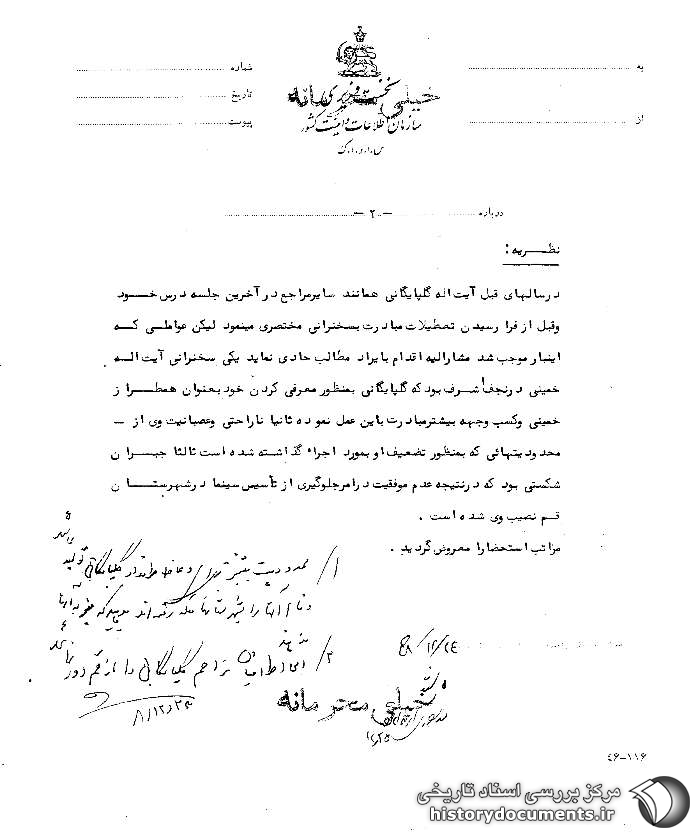 به
شماره
خیلی محرمانه
نخست وزیری
تاریخ
از
سازمان اطلاعات و امنیت کشور
پیوست
س.ا.و.ا.ک
درباره - ۲ -
نظریه:
در سالهای قبل آیت اله گلپایگانی همانند سایر مراجع در آخرین جلسه درس خود
وقبل از فرا رسیدن تعطیلات مبادرت بسخنرانی مختصری مینمود لیکن عواملی که
اینبار موجب شد مشارالیه اقدام بایراد مطالب حادی نماید یکی سخنرانی آیت اله
خمینی در نجف اشرف بود که گلپایگانی بمنظور معرفی کردن خود بعنوان همطراز
خمینی وکسب وجهه بیشتر مبادرت باین عمل نموده ثانیا ناراحتی وعصبانیت وی از -
محدودیتهائی که بمنظور تضعیف او بمورد اجراء گذاشته شده است ثالثا جبران
شکستی بود که در نتیجه عدم موفقیت در امر جلوگیری از تأسیس سینما در شهرستان
قم نصیب وی شده است .
مراتب استحضارا معروض گردید .
۱/ محدودیت بیشتر برای وعاظ طرفدار گلپایگانی تولید
۲/ اطرافیان مزاحم گلپایگانی را از قم دور
خیلی محرمانه
۴۶-۱۱۶
مرکز بررسی اسناد تاریخی
historydocuments.ir